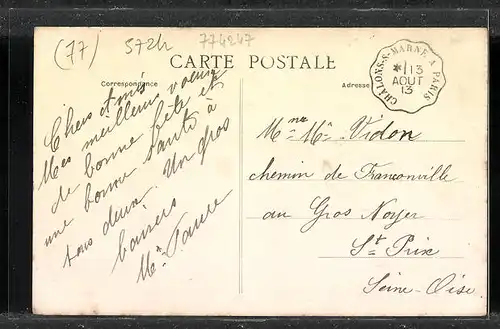 (77) 572h 774247
CARTE POSTALE
Correspondance
Adresse
CHALONS-S-MARNE A PARIS
* 13
AOUT
13
Chers amis
Mes meilleurs voeux
de bonne fête et
une bonne santé à
tous deux. Un gros
baisers
Mme Vidon
chemin de Franconville
au Gros Noyer
St Prix
Seine-Oise